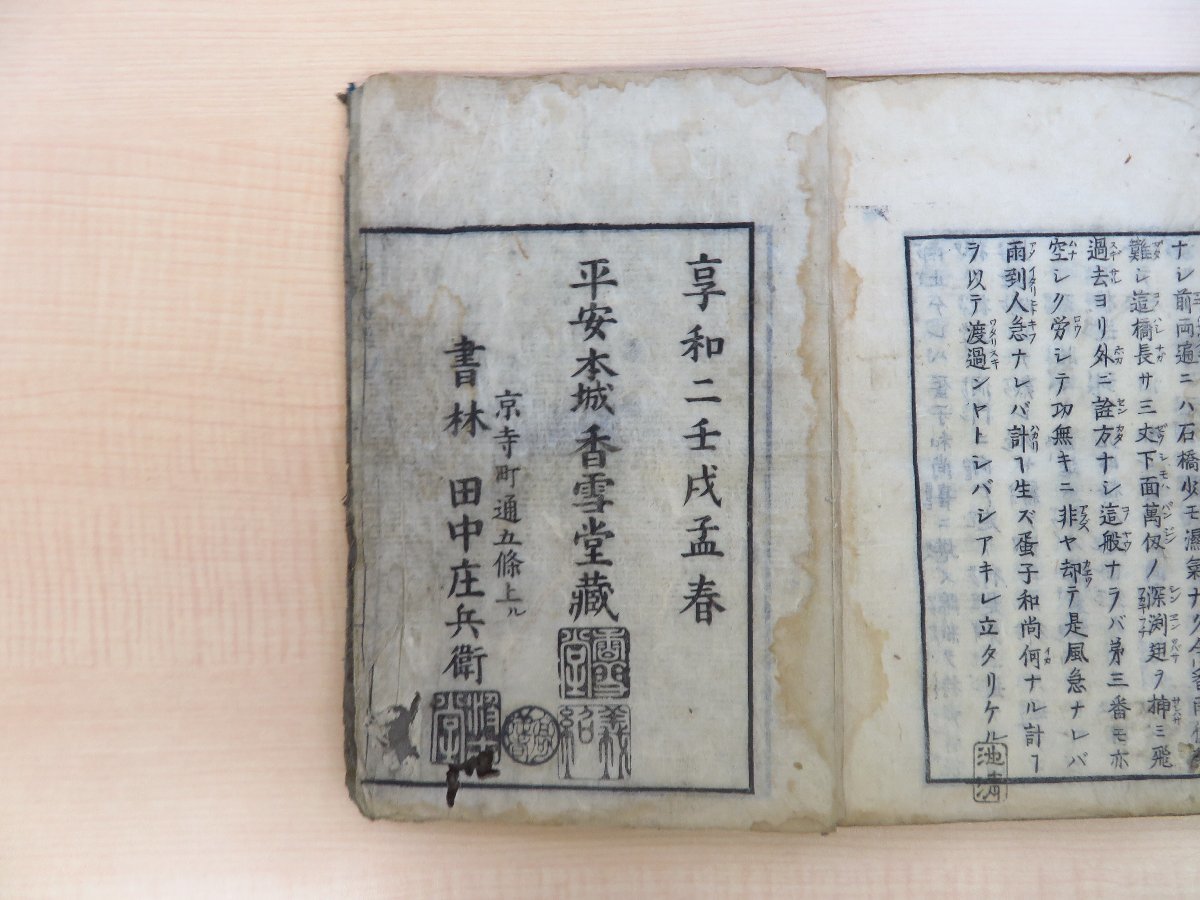 ナシ前両遍ニハ石橋少モ濕氣ナク今番雨
難シ這橋長サ三丈下面萬仭ノ深渕翅ヲ挿ミ飛
過去ヨリ外ニ詮方ナシ這般ナラバ苐三番モ亦
空シク労シテ功無キニ非ヤ却テ是風急ナレバ
雨到人急ナレバ計ヿ生ズ蛋子和尚何ナル計ヿ
ヲ以テ渡過ンヤトシバシアキレ立タリケル
池清
享和二壬戌孟春
平安本城香雪堂藏
香雪堂
京寺町通五條上ル
書林 田中庄兵衛